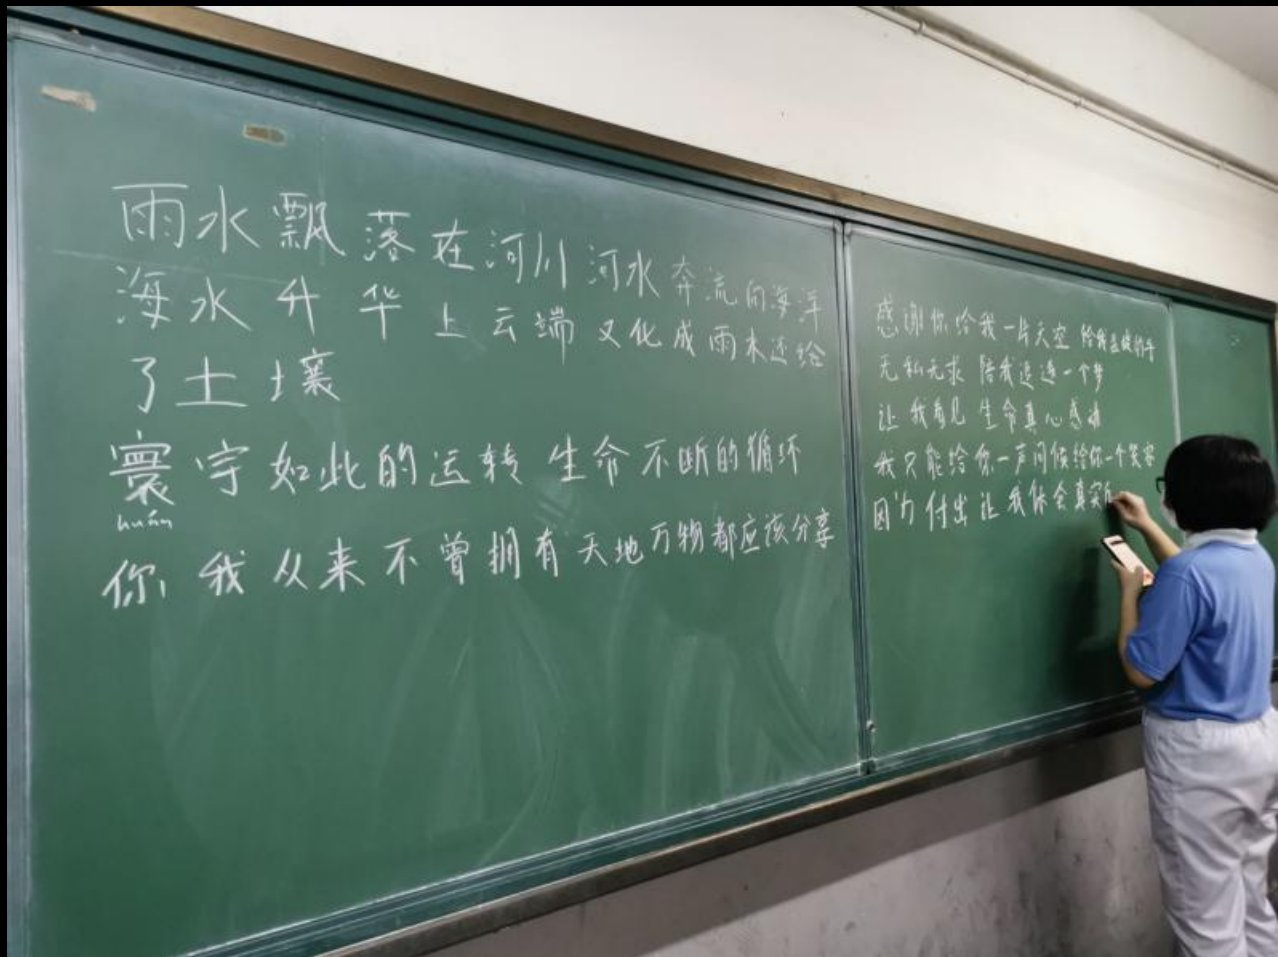 雨水飘落在河川 河水奔流向海洋
海水升华上云端 又化成雨水还给
了土壤
寰宇如此的运转 生命不断的循环
huán
你我从来不曾拥有 天地万物都应该分享
感谢你给我一片天空 给我温暖的手
无私无求 陪我追逐一个梦
让我看见 生命真心感动
我只能给你一声问候给你一个笑容
因为付出让我体会真实的